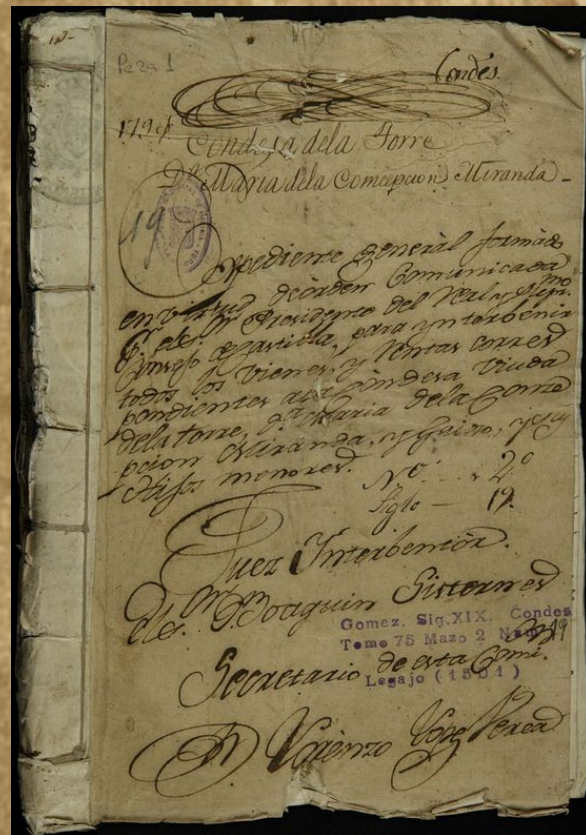 Peza 1
Condes
Condesa dela Torre
Dª Maria dela Comcepcion Miranda -
19
Expediente General formado
en virtud de orden Comunicada
Presidente del Real y Supr.mo
Consejo de Castilla, para ynterbenir
todos los vienes, y Rentas corres
pondientes ala Condesa viuda
dela torre, Dª Maria dela Conce
pcion Miranda, y Gaiso, y sus
Hijos menores.
Nº 2º
Siglo - 19.
Juez Interbentor.
Joaquin Sisternes
Gomez. Sig.XIX. Condes
Tomo 75 Mazo 2 Num 19
Secretario de esta Comi.
Legajo (1501)
Dn Lorenzo Lope Perea